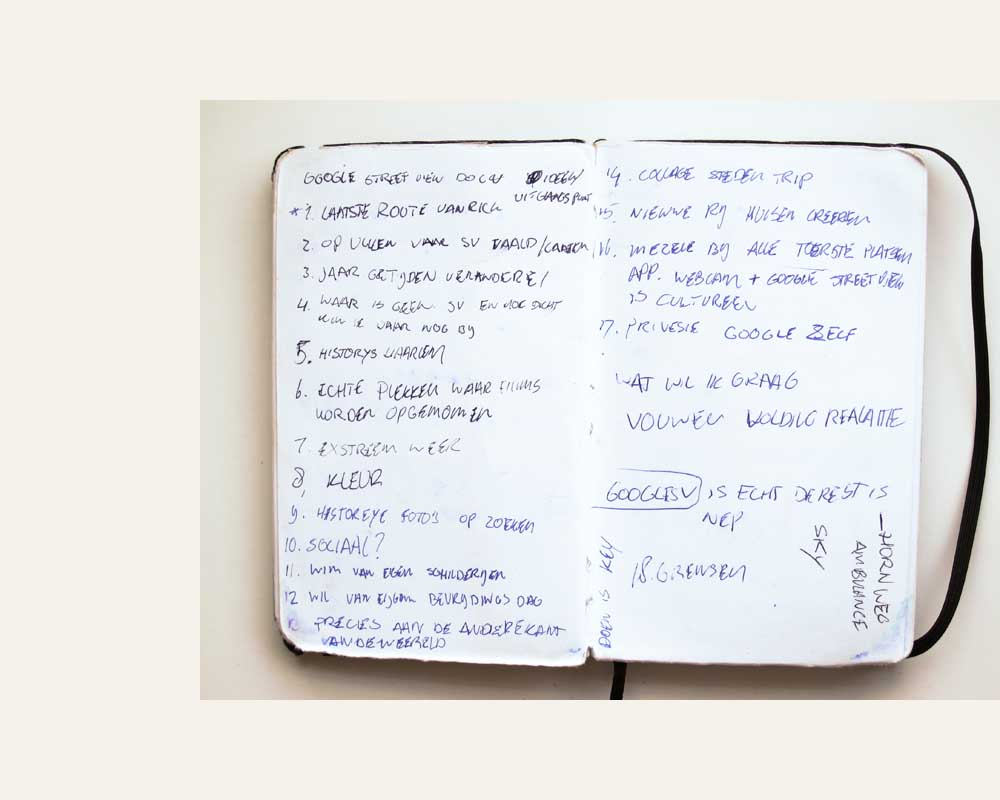 GOOGLE STREET VIEW DOCU IDEEËN/
UITGAAGSPUNT
* 1. LAATSTE ROUTE VAN RICK
2. OP VULLEN WAAR SV FAALD/
3. JAAR GETYDEN VERANDERE/
4. WAAR IS GEEN SV EN HOE DICHT
KUN JE DAAR NOG BY
5. HISTORYS HAARLEM
6. ECHTE PLEKKEN WAAR FILMS
WORDEN OPGEMOMEN
7. EXSTREEM WEER
8, KLEUR
9. HISTOREYE FOTO'S OP ZOEKEN
10. SOCIAAL?
11. WIM VAN EGEN SCHILDERYEN
12 WIL VAN BEVRYDINGS DAG
13 PRECIES AAN DE ANDEREKANT
VAN DE WEERELD
14. COLLAGE STEDEN TRIP
15. NIEUWE RY HUISEN CREEREN
16. MEZELF BY ALLE TOERSTE PLATSEN
APP. WEBCAM + GOOGLE STREETVIEW
IS CULTUREEN
17. PRIVESIE GOOGLE ZELF
WAT WIL IK GRAAG
VOUWEN REALATIE
GOOGLESV IS ECHT DE REST IS
NEP
18. GRENSEN
DOEN IS KEY
SKY
—HORN WEG
AMBULANCE